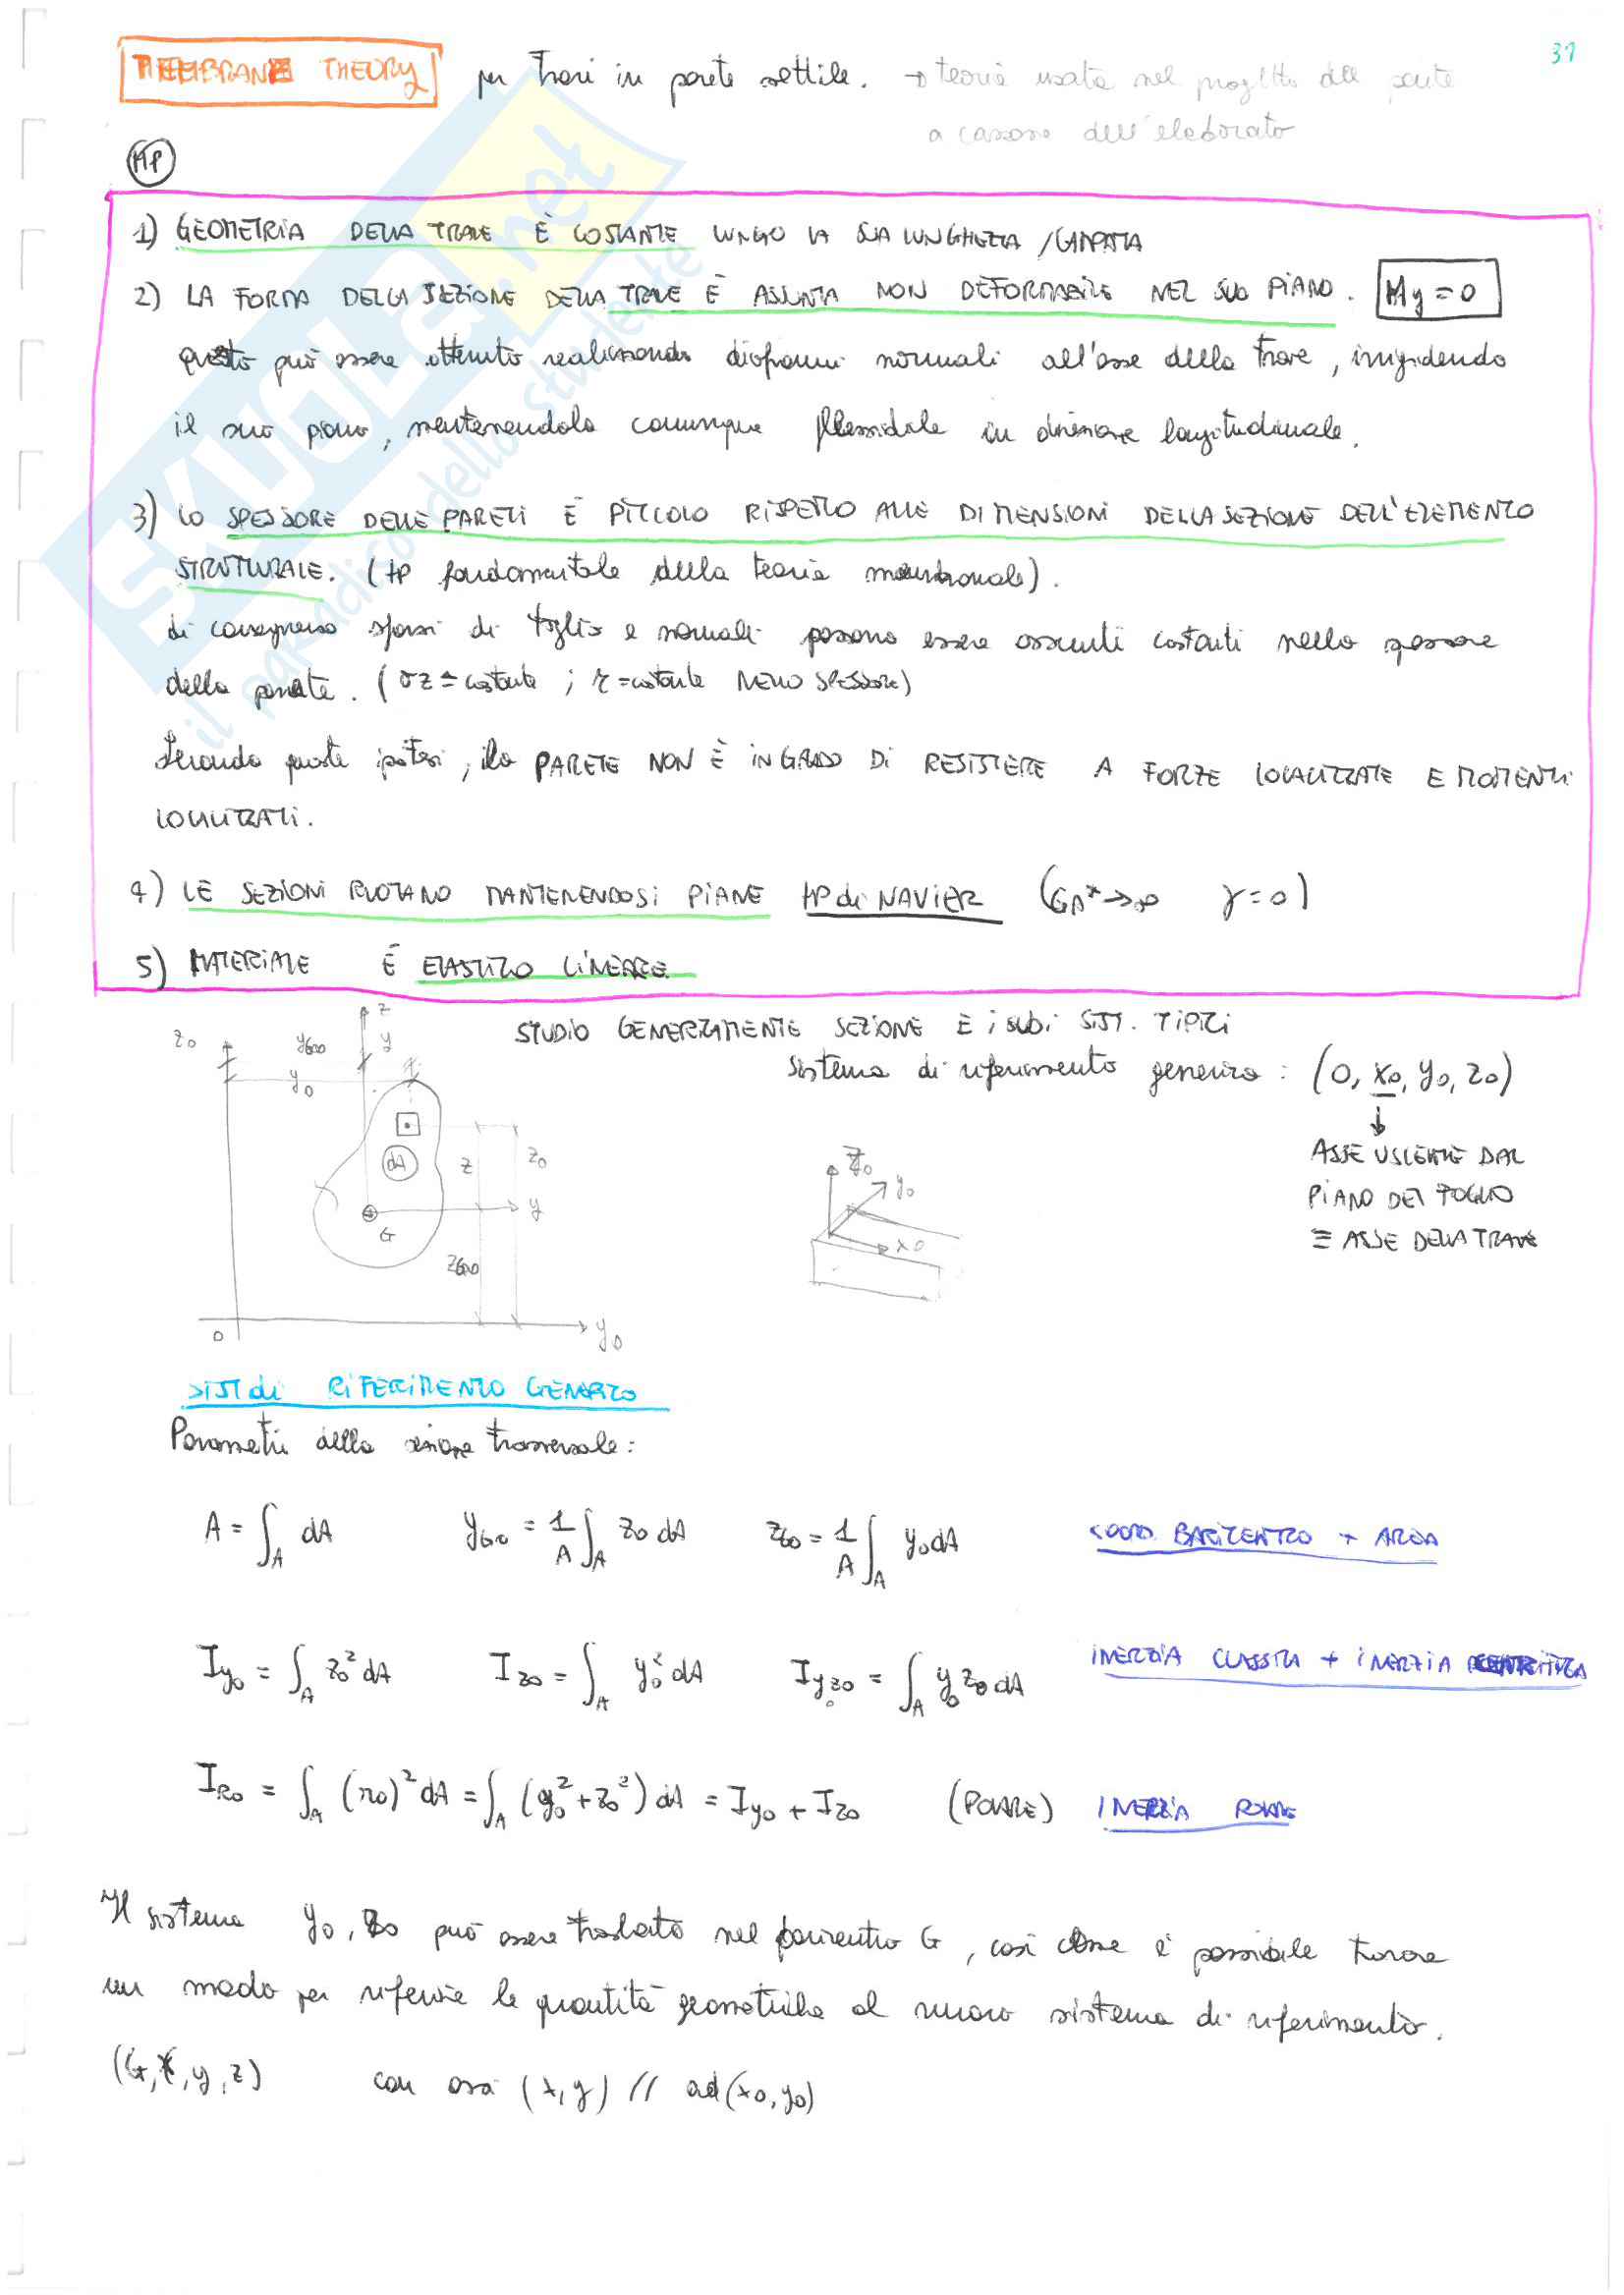 31
MEMBRANE THEORY per travi in parete sottile. → teoria usata nel progetto del ponte
a cassone dell'elaborato
HP
1) GEOMETRIA DELLA TRAVE È COSTANTE LUNGO LA SUA LUNGHEZZA / CAMPATA
2) LA FORMA DELLA SEZIONE DELLA TRAVE È ASSUNTA NON DEFORMABILE NEL SUO PIANO. My = 0
questo può essere ottenuto realizzando diaframmi normali all'asse della trave, irrigidendo
il suo piano, mantenendola comunque flessibile in direzione longitudinale.
3) LO SPESSORE DELLE PARETI È PICCOLO RISPETTO ALLE DIMENSIONI DELLA SEZIONE DELL'ELEMENTO
STRUTTURALE. (HP fondamentale della teoria membranale).
di conseguenza sforzi di taglio e normali possono essere assunti costanti nello spessore
della parete. (σz = costante ; τ = costante NELLO SPESSORE)
Secondo queste ipotesi, la PARETE NON È IN GRADO DI RESISTERE A FORZE LOCALIZZATE E MOMENTI
LOCALIZZATI.
4) LE SEZIONI RUOTANO MANTENENDOSI PIANE HP di NAVIER (GA* → ∞ γ = 0)
5) MATERIALE È ELASTICO LINEARE
STUDIO GENERICAMENTE SEZIONE E i suoi SIST. TIPICI
Sistema di riferimento generico : (0, x0, y0, z0)
↓
ASSE USCENTE DAL
PIANO DEL FOGLIO
≡ ASSE DELLA TRAVE
z0 yG0 z y
y0
dA
z z0
G y
zG0
0 y0
z0 y0 x0
SIST di RIFERIMENTO GENERICO
Parametri della sezione trasversale:
A = ∫A dA yG0 = 1/A ∫A z0 dA zG0 = 1/A ∫A y0 dA COORD. BARICENTRO + AREA
Iy0 = ∫A z0² dA Iz0 = ∫A y0² dA Iy0z0 = ∫A y0 z0 dA INERZIA CLASSICA + INERZIA CENTRIFUGA
IR0 = ∫A (r0)² dA = ∫A (y0² + z0²) dA = Iy0 + Iz0 (POLARE) INERZIA POLARE
Il sistema y0, z0 può essere traslato nel baricentro G, così come è possibile trovare
un modo per riferire le quantità geometriche al nuovo sistema di riferimento.
(G, x, y, z) con assi (x, y) // ad (x0, y0)
SKUOLA.net
il paradiso dello studente